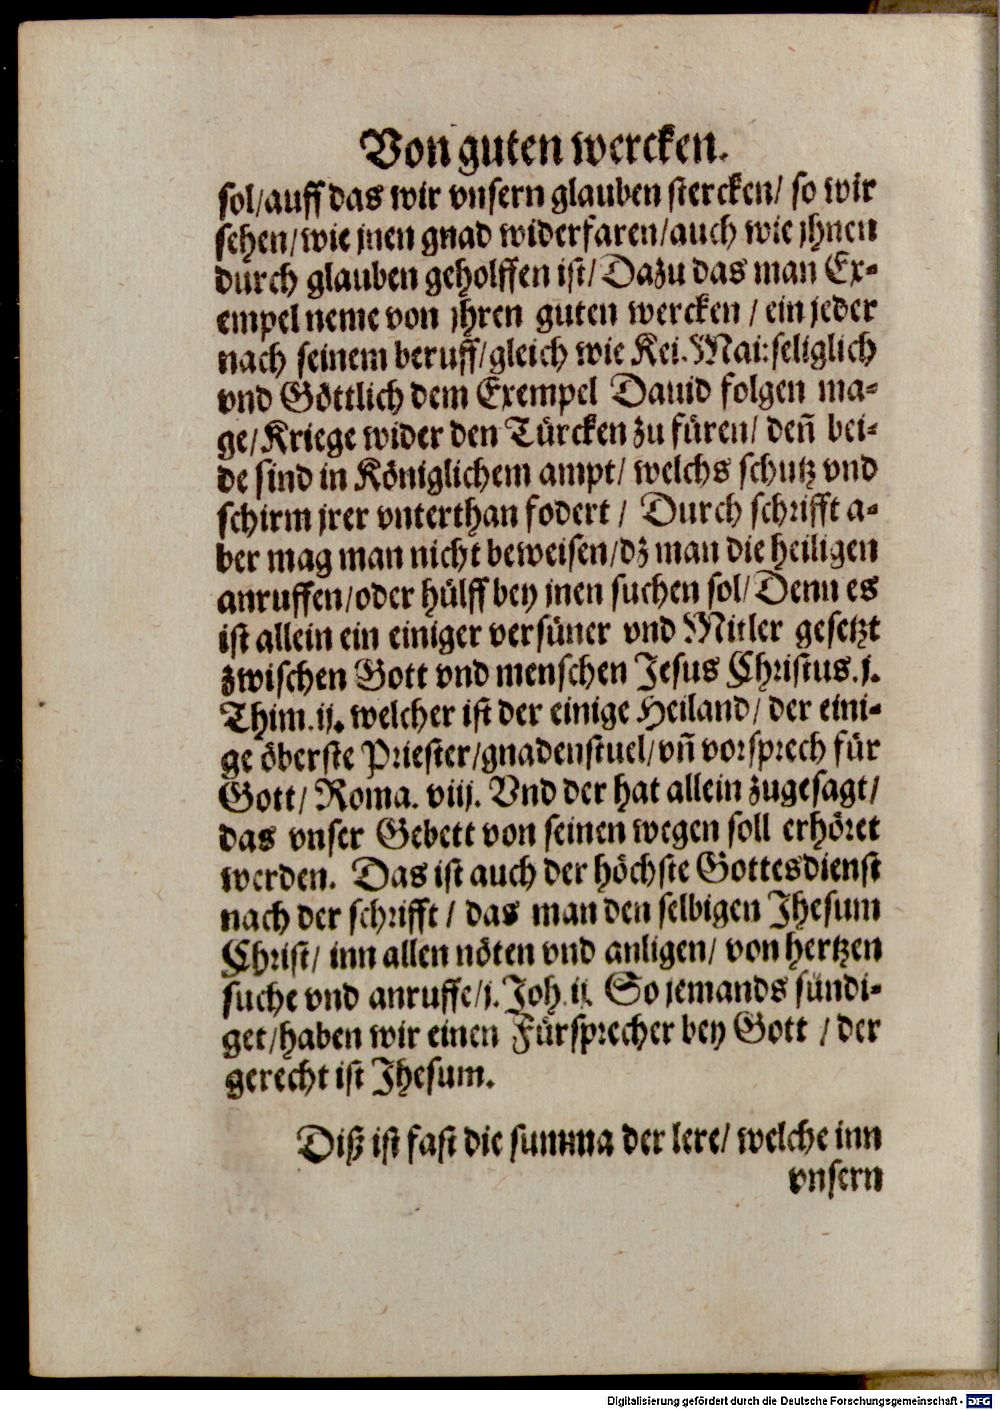 Von guten wercken.
sol/auff das wir vnsern glauben stercken/ so wir
sehen/wie jnen gnad widerfaren/auch wie jhnen
durch glauben geholffen ist/ Dazu das man Ex-
empel neme von jhren guten wercken / ein jeder
nach seinem beruff/gleich wie Kei. Mai: seliglich
vnd Göttlich dem Exempel Dauid folgen ma-
ge/ Kriege wider den Türcken zu füren/ deñ bei-
de sind in Königlichem ampt/ welchs schutz vnd
schirm jrer vnterthan fodert / Durch schrifft a-
ber mag man nicht beweisen/dz man die heiligen
anruffen/oder hülff bey jnen suchen sol/ Denn es
ist allein ein einiger versüner vnd Mitler gesetzt
zwischen Gott vnd menschen Jesus Christus. j.
Thim. ij. welcher ist der einige Heiland/ der eini-
ge öberste Priester/gnadenstuel/vñ vorsprech für
Gott/ Roma. viij. Vnd der hat allein zugesagt/
das vnser Gebett von seinen wegen soll erhöret
werden. Das ist auch der höchste Gottesdienst
nach der schrifft / das man den selbigen Jhesum
Christ/ inn allen nöten vnd anligen/ von hertzen
suche vnd anruffe/j. Joh. ij. So jemands sündi-
get/haben wir einen Fürsprecher bey Gott / der
gerecht ist Jhesum.
Diß ist fast die summa der lere/ welche inn
vnsern
Digitalisierung gefördert durch die Deutsche Forschungsgemeinschaft - DFG